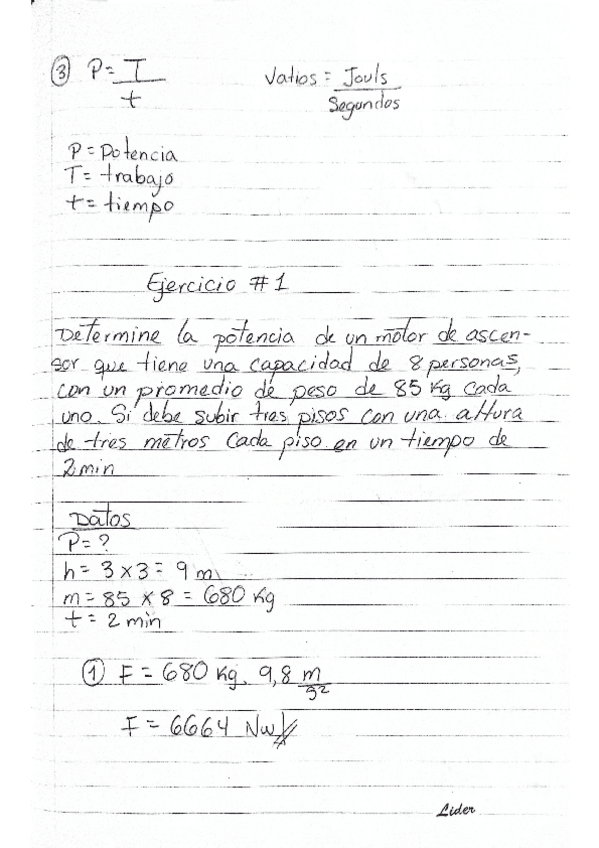 ③ P = T / t    Vatios = Jouls / Segundos
P = Potencia
T = trabajo
t = tiempo
Ejercicio #1
Determine la potencia de un motor de ascen-
sor que tiene una capacidad de 8 personas,
con un promedio de peso de 85 Kg cada
uno. Si debe subir tres pisos con una altura
de tres metros cada piso en un tiempo de
2 min
Datos
P = ?
h = 3 x 3 = 9 m
m = 85 x 8 = 680 Kg
t = 2 min
① F = 680 Kg. 9,8 m / s²
F = 6664 Nw//
Lider